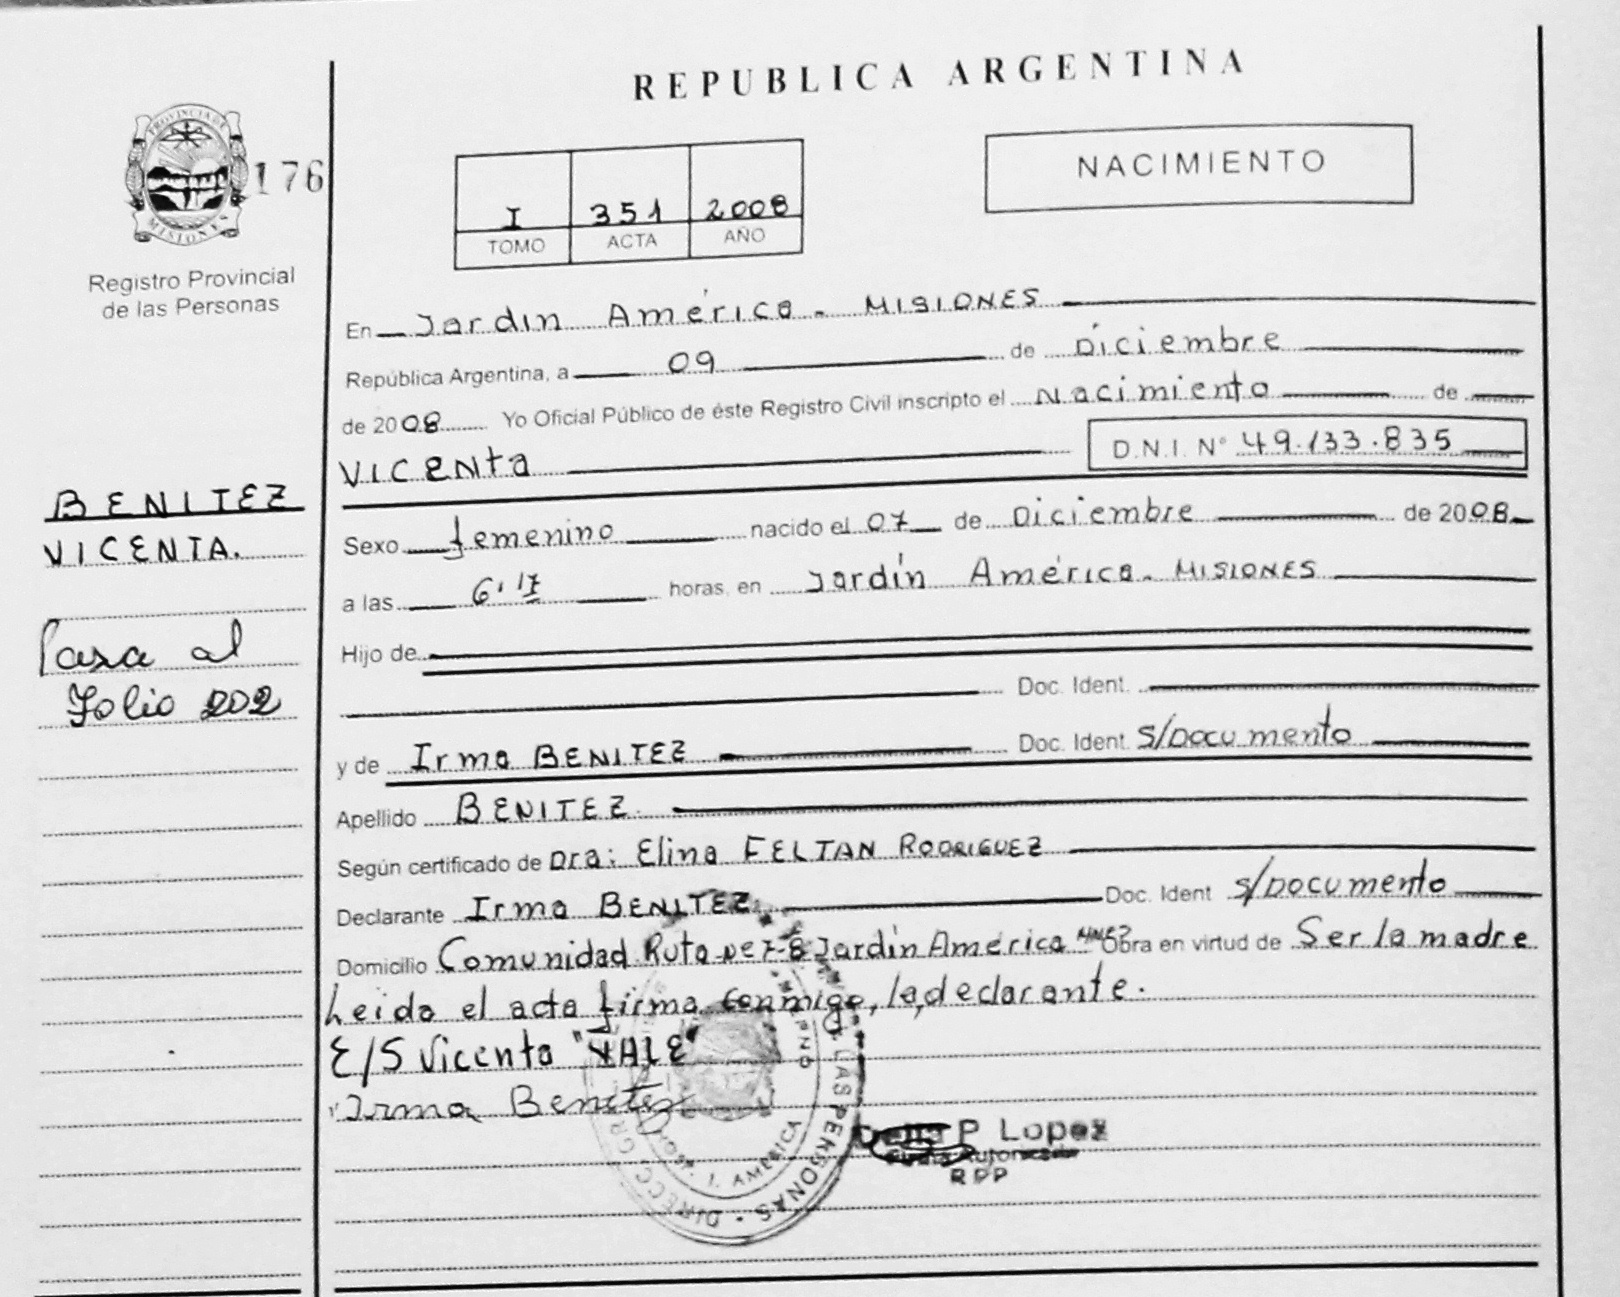 REPUBLICA ARGENTINA
PROVINCIA DE
MISIONES
176
Registro Provincial
de las Personas
I 351 2008
TOMO ACTA AÑO
NACIMIENTO
En Jardín América - MISIONES
República Argentina, a 09 de Diciembre
de 2008 Yo Oficial Público de éste Registro Civil inscripto el Nacimiento de
VICENTA D.N.I. N° 49.133.835
BENITEZ
VICENTA.
Pasa al
Folio 202
Sexo femenino nacido el 07 de Diciembre de 2008
a las 6'17 horas, en Jardín América - MISIONES
Hijo de
Doc. Ident.
y de Irma BENITEZ Doc. Ident. S/Documento
Apellido BENITEZ
Según certificado de Dra: Elina FELTAN RODRIGUEZ
Declarante Irma BENITEZ Doc. Ident S/Documento
Domicilio Comunidad Ruta Ne 7-8 Jardín América Mnes Obra en virtud de Ser la madre
Leida el acta firma conmigo, la declarante.
E/S Vicenta "VALE"
Irma Benitez
LAS PERSONAS
J. AMERICA
P Lopez
RPP